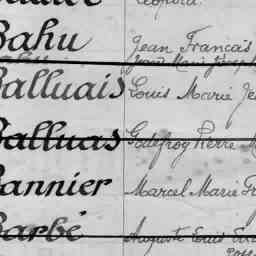 Léopold
Bahu Jean Francais
Jean Marie Joseph
Balluais Louis Marie Je
Balluas Godefroy Pierre M
Bannier Marcel Marie Fr
Barbé Auguste Louis